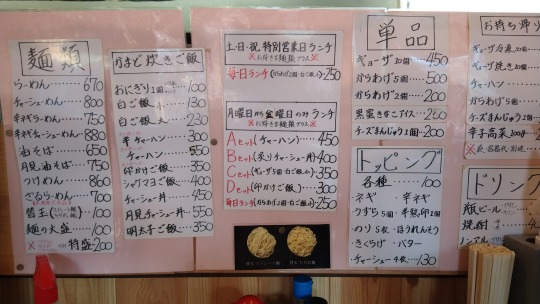 麺類
らーめん 670
チャーシューめん 800
辛ネギらーめん 750
辛ネギチャーシューめん 880
油そば 650
月見油そば 750
つけめん 860
ざるらーめん 700
替玉 100
麺の大盛 100
特盛 200
かまど炊きご飯
おにぎり2個 100
白ご飯 小 130
白ご飯 大 230
半チャーハン 300
チャーハン 550
卵かけご飯 350
チャーシュー丼 450
月見チャーシュー丼 550
明太子ご飯 350
土・日・祝 特別営業日ランチ
※お好きな麺類プラス※
毎日ランチ(からあげ2個 白ご飯小) 250
月曜日から金曜日のみランチ
※お好きな麺類プラス※
Aセット(チャーハン) 450
Bセット(炙りチャーシュー丼) 400
Cセット(ギョーザ5個 白ご飯小) 350
Dセット(卵かけご飯) 300
毎日ランチ(からあげ2個 白ご飯小) 250
単品
ギョーザ10個 450
からあげ5個 500
からあげ2個 200
黒蜜きなこアイス 200
チーズまんじゅう2個 200
トッピング
各種 100
ネギ・辛ネギ
うずら5個・半熟卵2個
のり5枚・ほうれんそう
きくらげ・バター
チャーシュー4枚 130
お持ち帰り
ギョーザ冷凍20個
ギョーザ焼き10個
チャーハン
からあげ5個
チーズまんじゅう
辛子高菜
ドリン
瓶ビール
焼酎
ノンアル